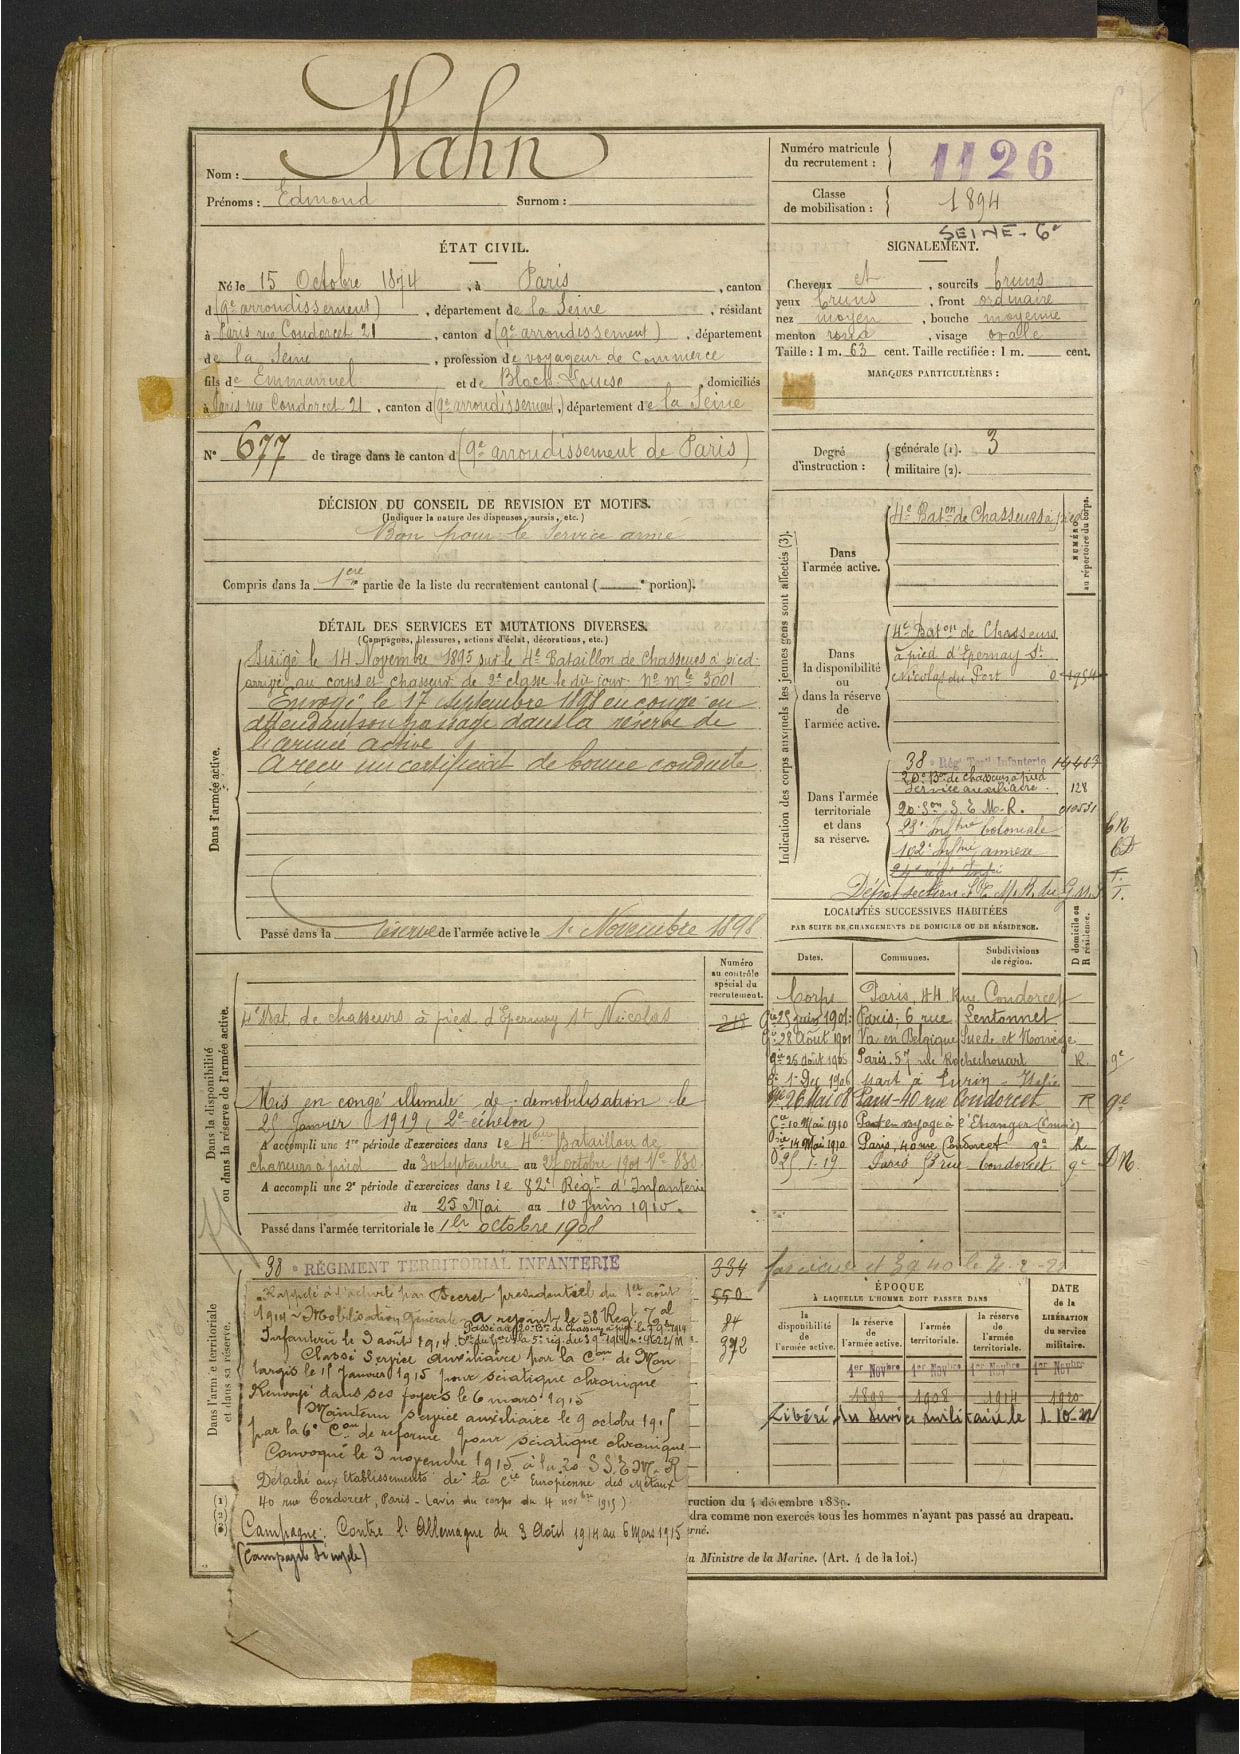 Nom : Kahn
Prénoms : Edmond Surnom :
Numéro matricule du recrutement : 1126
Classe de mobilisation : 1894
SEINE - 6e
ÉTAT CIVIL.
Né le 15 Octobre 1874, à Paris, canton
d (9e arrondissement), département de la Seine, résidant
à Paris rue Condorcet 21, canton d (9e arrondissement), département
de la Seine, profession de voyageur de commerce
fils de Emmanuel et de Bloch Louise, domiciliés
à Paris rue Condorcet 21, canton d (9e arrondissement), département de la Seine
N° 677 de tirage dans le canton d (9e arrondissement de Paris)
SIGNALEMENT.
Cheveux et, sourcils bruns
yeux bruns, front ordinaire
nez moyen, bouche moyenne
menton rond, visage ovale
Taille : 1 m. 63 cent. Taille rectifiée : 1 m. cent.
MARQUES PARTICULIÈRES :
Degré d'instruction : générale (1). 3
militaire (2).
DÉCISION DU CONSEIL DE REVISION ET MOTIFS.
(Indiquer la nature des dispenses, sursis, etc.)
Bon pour le service armé
Compris dans la 1ère partie de la liste du recrutement cantonal ( e portion).
DÉTAIL DES SERVICES ET MUTATIONS DIVERSES.
(Campagnes, blessures, actions d'éclat, décorations, etc.)
Dans l'armée active.
Dirigé le 14 Novembre 1895 sur le 4e Bataillon de chasseurs à pied
arrivé au corps et chasseur de 2e classe le dit jour. No mle 3001
Envoyé le 17 septembre 1898 en congé en
attendant son passage dans la réserve de
l'armée active
A reçu un certificat de bonne conduite
Passé dans la réserve de l'armée active le 1er Novembre 1898
Indication des corps auxquels les jeunes gens sont affectés (3).
NUMÉRO au répertoire du corps.
Dans l'armée active.
4e Baton de Chasseurs à pied
Dans la disponibilité ou dans la réserve de l'armée active.
4e Baton de Chasseurs
à pied d'Epernay St
Nicolas du Port
Dans l'armée territoriale et dans sa réserve.
38e Régt Terl Infanterie
20e Bon de chasseurs à pied
Service auxiliaire. 128
20e Son S.E.M.R.
23e Inftrie Coloniale
102e Inftrie annexe
LOCALITÉS SUCCESSIVES HABITÉES
PAR SUITE DE CHANGEMENTS DE DOMICILE OU DE RÉSIDENCE.
Dates. Communes. Subdivisions de région. D domicile ou R résidence.
Corps Paris, 44 Rue Condorcet
25 Juin 1901 Paris. 6 rue Lentonnet
28 Août 1901 Va en Belgique Suède et Norvège
25 août 1905 Paris. 57 rue Rochechouart R. 9e
1 Dec 1906 part à Turin - Italie
26 Mai 08 Paris - 40 rue Condorcet R 9e
10 Mai 1910 Part en voyage à l'Etranger
14 Mai 1910 Paris, 40 rue Condorcet 9e R
25-1-19 Paris 53 rue Condorcet 9e
Dans la disponibilité ou dans la réserve de l'armée active.
Numéro au contrôle spécial du recrutement.
4e Bat. de chasseurs à pied d'Epernay St Nicolas
Mis en congé illimité de démobilisation le
25 Janvier 1919 (2e échelon)
A accompli une 1re période d'exercices dans le 4ème Bataillon de
chasseurs à pied du 30 septembre au 27 octobre 1901
A accompli une 2e période d'exercices dans le 82e Régt d'Infanterie
du 25 Mai au 10 Juin 1910.
Passé dans l'armée territoriale le 1er octobre 1908
Dans l'armée territoriale et dans sa réserve.
38e RÉGIMENT TERRITORIAL INFANTERIE
334
550
84
372
Rappelé à l'activité par Décret présidentiel du 1er août
1914 - Mobilisation Générale. A rejoint le 38 Reg. Tal
Infanterie le 3 août 1914
Classé Service Auxiliaire par la Con de Mon
targis le 15 Janvier 1915 pour sciatique chronique
Renvoyé dans ses foyers le 6 mars 1915
Maintenu service auxiliaire le 9 octobre 1915
par la 6e Con de réforme pour sciatique chronique
Convoqué le 3 novembre 1915 à la 20 S S.E.M.R
Détaché aux Etablissements de la Cie Européenne des Métaux
40 rue Condorcet, Paris - (avis du corps du 4 novbre 1915)
Campagne : Contre l'Allemagne du 3 Août 1914 au 6 Mars 1915
(Campagne simple)
ÉPOQUE
À LAQUELLE L'HOMME DOIT PASSER DANS
la disponibilité de l'armée active. la réserve de l'armée active. l'armée territoriale. la réserve de l'armée territoriale.
DATE de la LIBÉRATION du service militaire.
1er Novbre 1898 1er Novbre 1908 1er Novbre 1914 1er Novbre 1920
Libéré du service militaire le 1-10-22
ruction du 4 décembre 1889.
dra comme non exercés tous les hommes n'ayant pas passé au drapeau.
erné.
u Ministre de la Marine. (Art. 4 de la loi.)